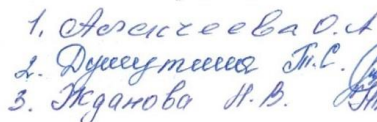 1. Алексеева О. А
2. Душутина Т. С.
3. Жданова Н. В.